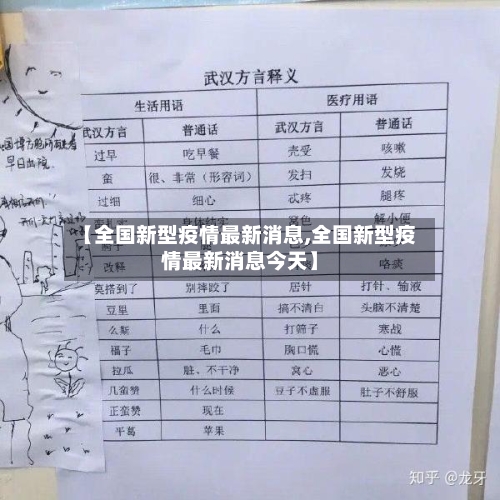 武汉方言释义
生活用语 医疗用语
武汉方言 普通话 武汉方言 普通话
过早 吃早餐 壳受 咳嗽
蛮 很、非常（形容词） 发扫 发烧
过细 细心 忒疼 腿疼
解小便
【全国新型疫情最新消息,全国新型疫
情最新消息今天】
改释 咯痰
莫搭到了 别摔跤了 居针 打针、输液
豆里 里面 搞不清白 头脑不清楚
么斯 什么 打筛子 寒战
福子 毛巾 胸口慌 心慌
拉瓜 脏、不干净 窝心 恶心
几蛮赞 什么时候 豆子不虚服 肚子不舒服
正蛮赞 现在
平葛 苹果
早日出院
知乎 @龙牙